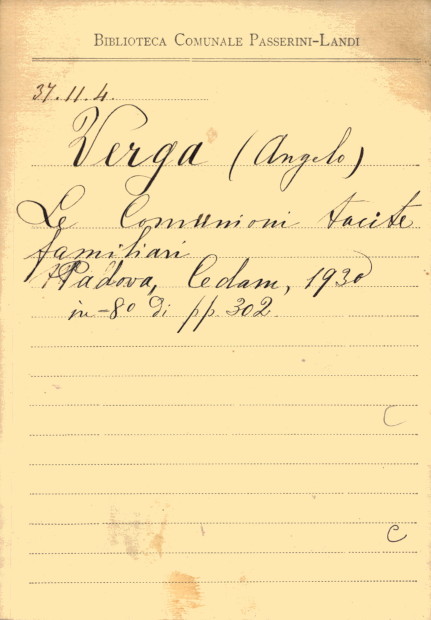 BIBLIOTECA COMUNALE PASSERINI-LANDI
37.11.4.
Verga (Angelo)
Le Comunioni tacite
familiari
Padova, Cedam, 1930
in-8º di pp. 302.
C
C